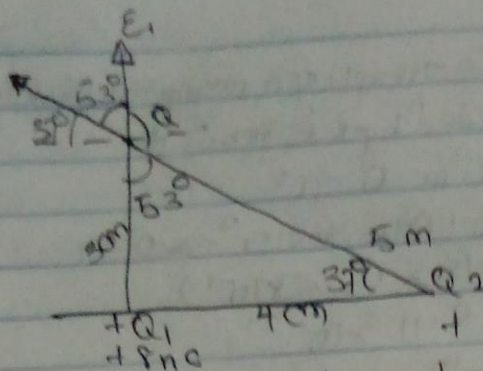 E₁
53°
37°
Q
53°
3m
5m
37°
Q2
4m
+Q1
+
+8nc